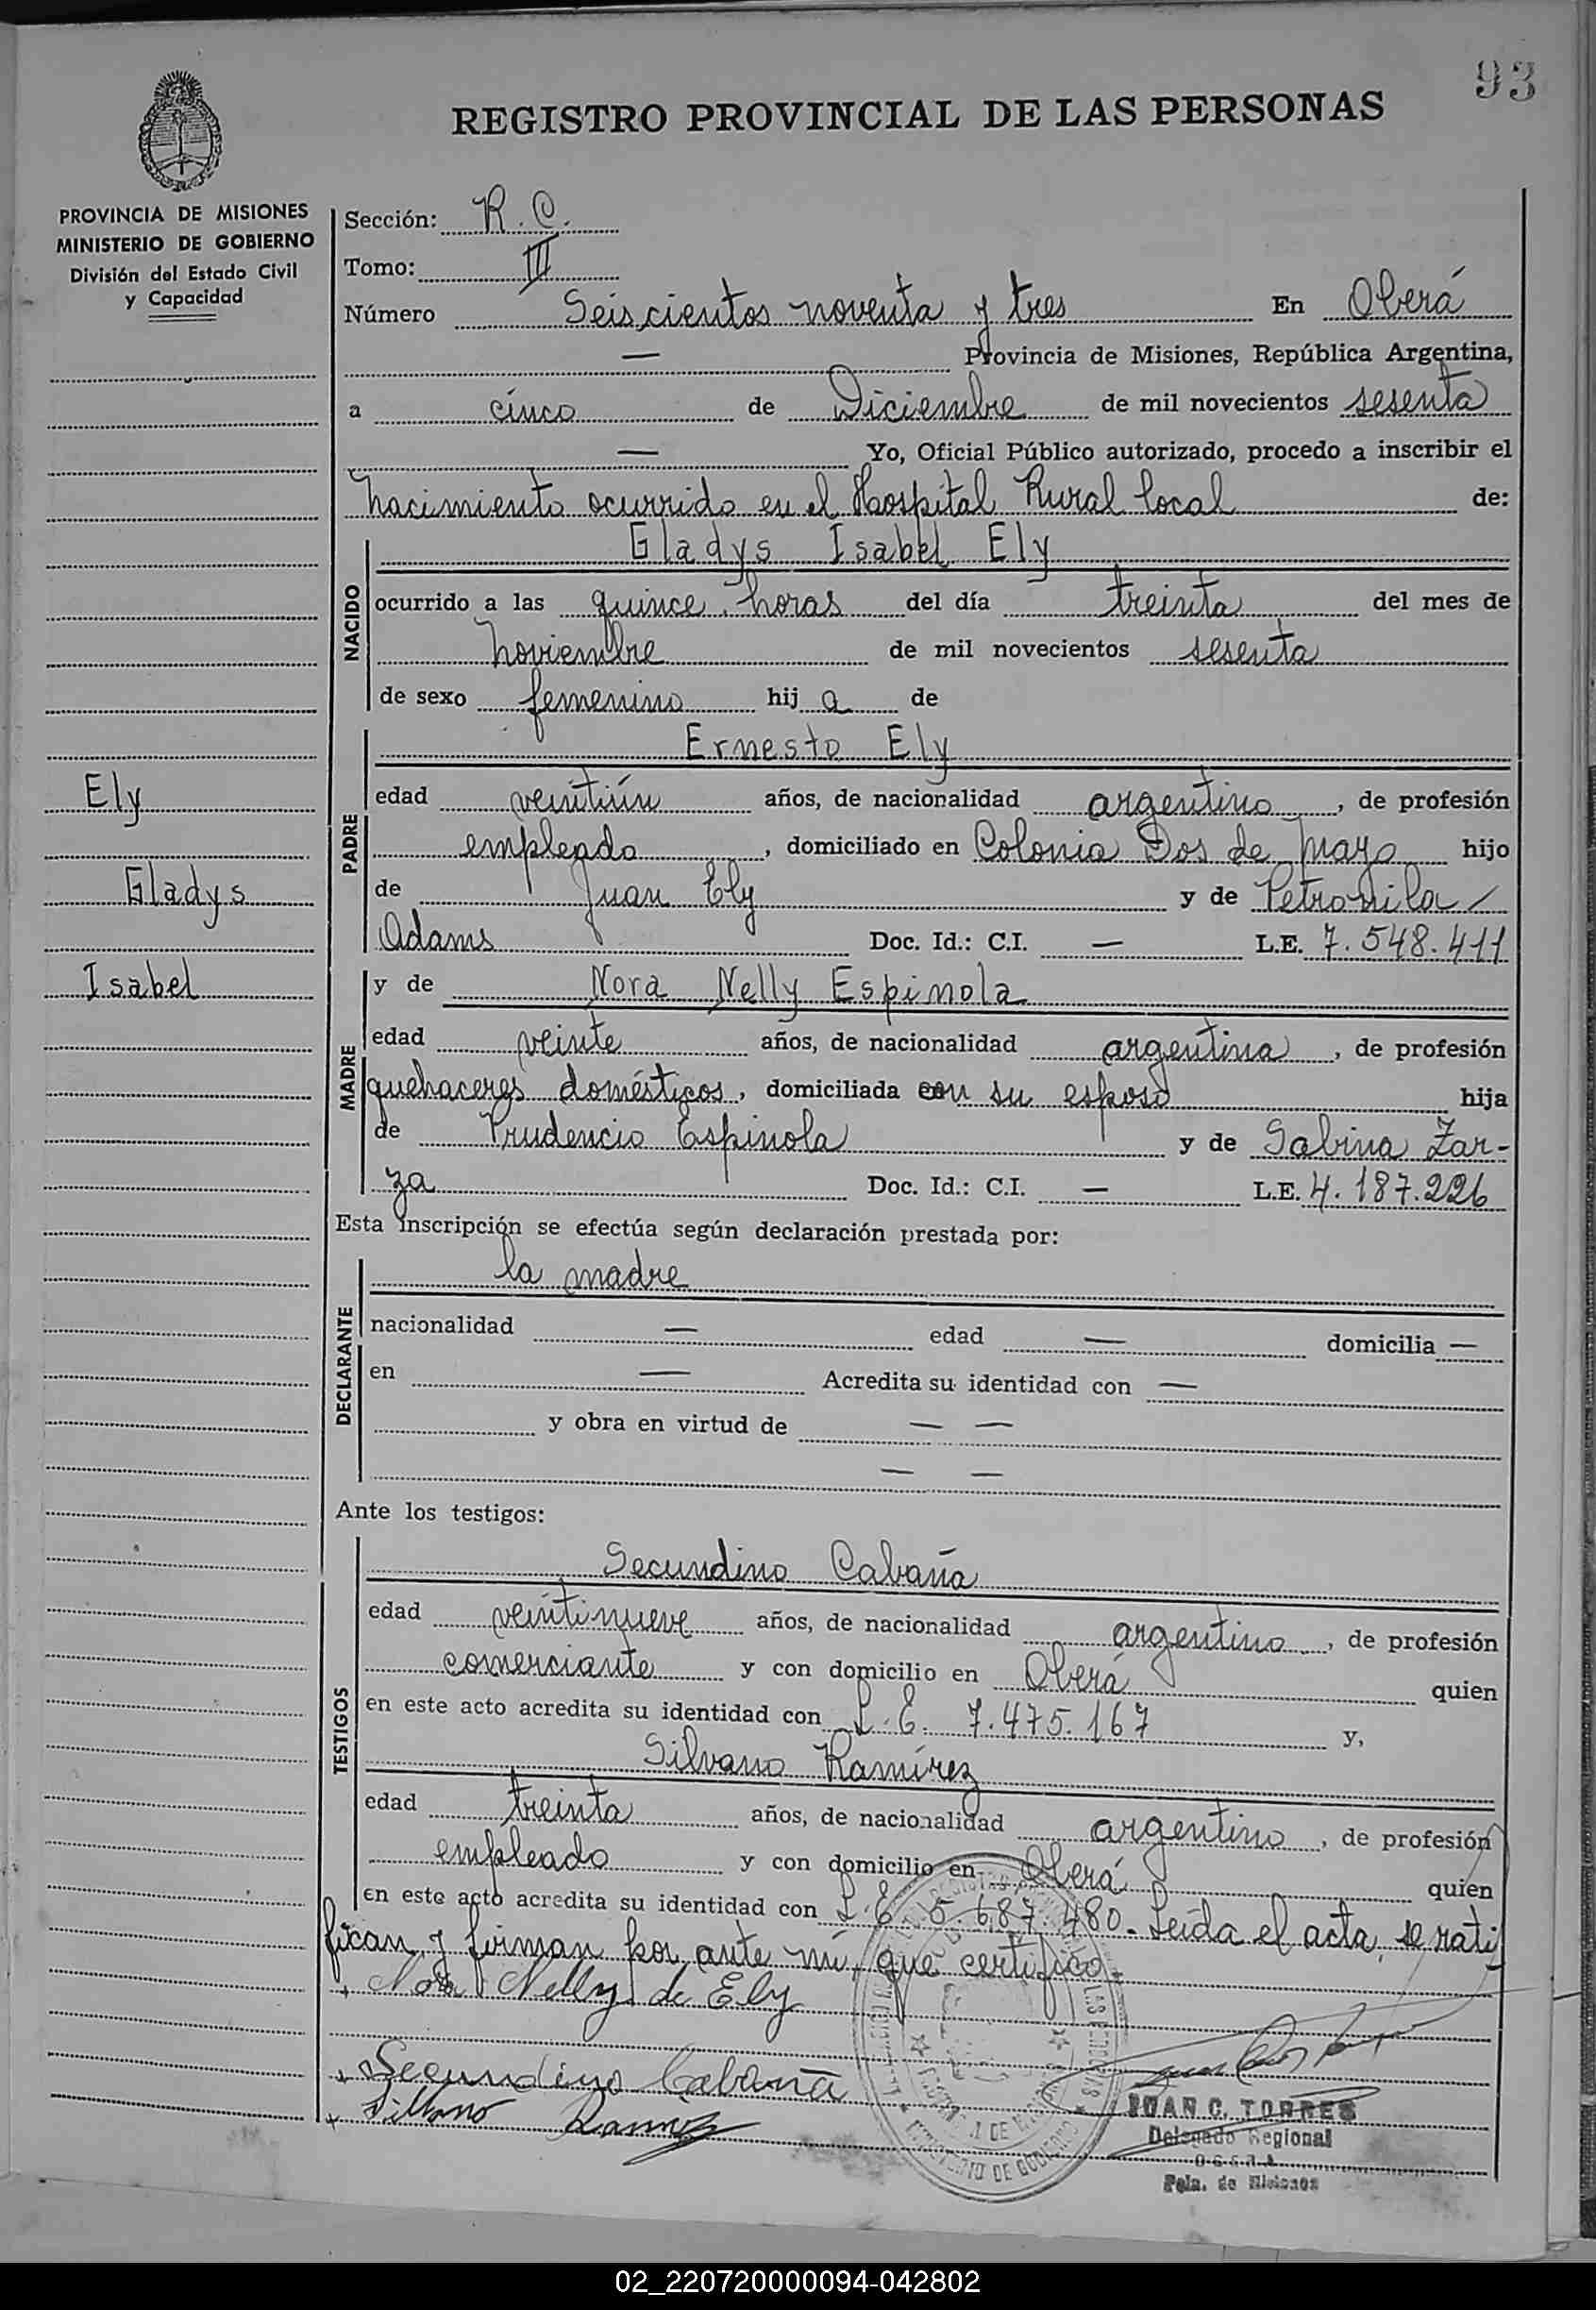 93
REGISTRO PROVINCIAL DE LAS PERSONAS
PROVINCIA DE MISIONES
MINISTERIO DE GOBIERNO
División del Estado Civil
y Capacidad
Sección: R. C.
Tomo: III
Número Seiscientos noventa y tres En Oberá
— Provincia de Misiones, República Argentina,
a cinco de Diciembre de mil novecientos sesenta
— Yo, Oficial Público autorizado, procedo a inscribir el
nacimiento ocurrido en el Hospital Rural local de:
NACIDO
Gladys Isabel Ely
ocurrido a las quince horas del día treinta del mes de
noviembre de mil novecientos sesenta
de sexo femenino hija de
PADRE
Ernesto Ely
Ely
edad veintiún años, de nacionalidad argentino, de profesión
empleado, domiciliado en Colonia Dos de Mayo hijo
Gladys
de Juan Ely y de Petronila
Adams Doc. Id.: C.I. — L.E. 7.548.411
Isabel
MADRE
y de Nora Nelly Espinola
edad veinte años, de nacionalidad argentina, de profesión
quehaceres domésticos, domiciliada con su esposo hija
de Prudencio Espinola y de Sabina Zar-
za Doc. Id.: C.I. — L.E. 4.187.226
Esta inscripción se efectúa según declaración prestada por:
DECLARANTE
la madre
nacionalidad — edad — domicilia —
en — Acredita su identidad con —
y obra en virtud de — —
— —
Ante los testigos:
TESTIGOS
Secundino Cabaña
edad veintinueve años, de nacionalidad argentino, de profesión
comerciante y con domicilio en Oberá quien
en este acto acredita su identidad con L. E. 7.475.167 y,
Silvano Ramírez
edad treinta años, de nacionalidad argentino, de profesión
empleado y con domicilio en Oberá quien
en este acto acredita su identidad con L. E. 5.687.480.- Leída el acta, se rati
fican y firman por ante mí, que certifico.-
Nora Nelly de Ely
Secundino Cabaña
Silvano Ramírez
JUAN C. TORRES
Delegado Regional
OBERA
Pcia. de Misiones
02_220720000094-042802